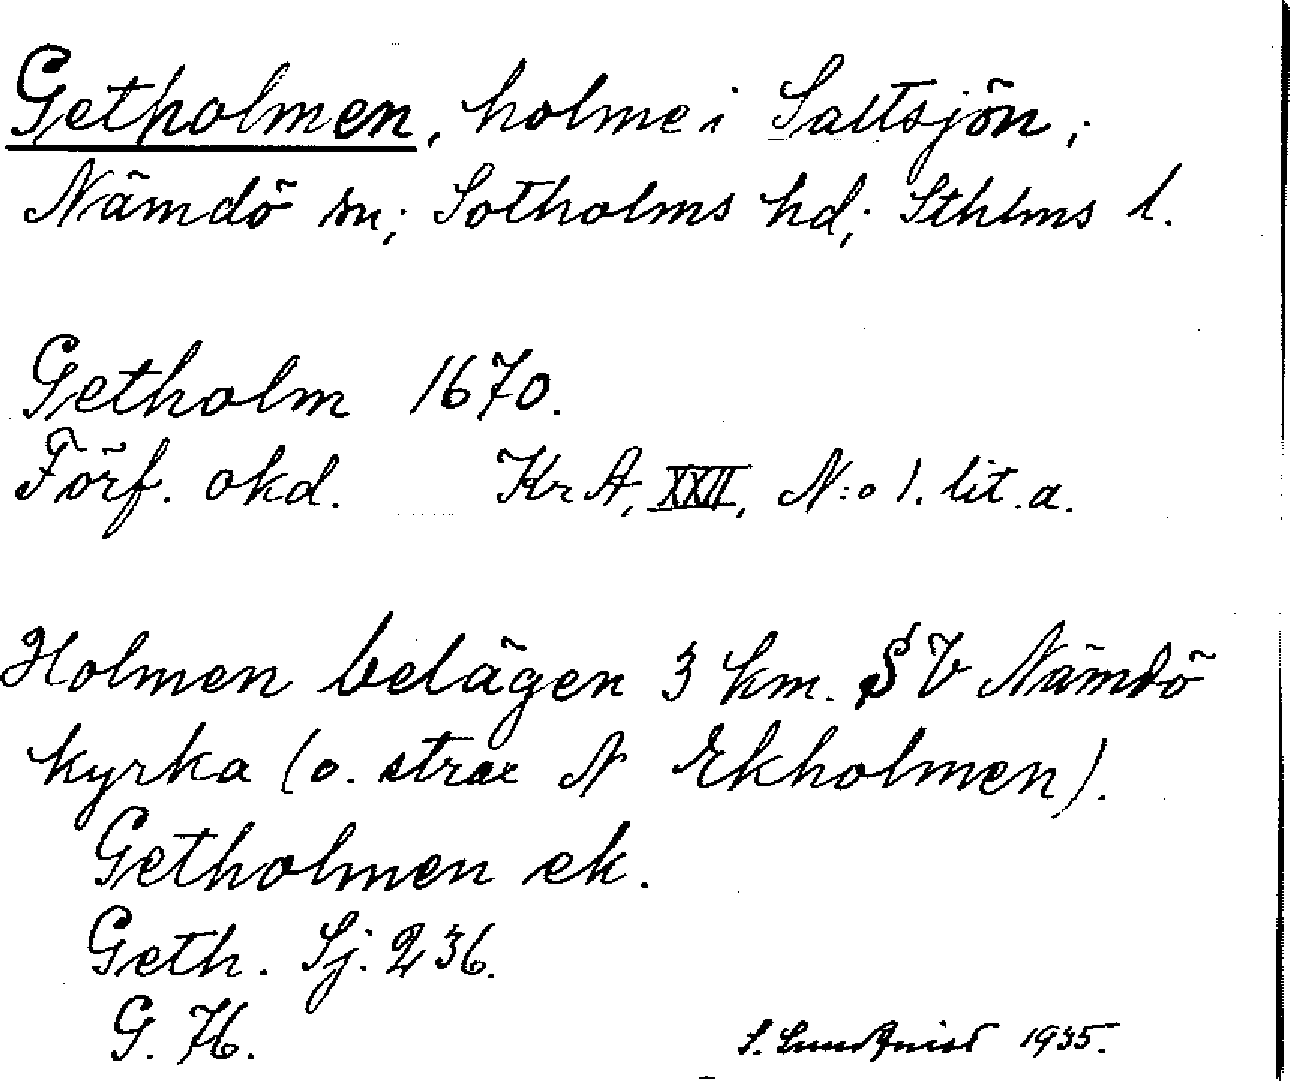 Getholmen, holme i Saltsjön,
Nämdö sn, Sotholms hd, Sthlms l.
Getholm 1670.
Förf. okd. Kr A, XXII, N:o 1. lit. a.
Holmen belägen 3 km. SV Nämdö
kyrka (o. strax N Ekholmen).
Getholmen ek.
Geth. Sj. 236.
G. 76.
S. Lundqvist 1935.